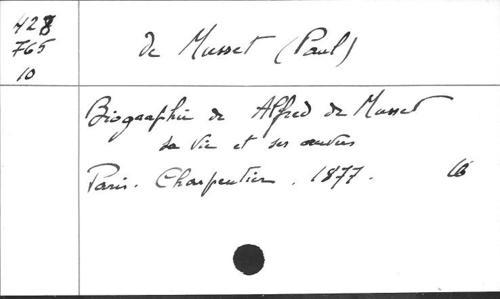 428
765
10
de Musset (Paul)
Biographie de Alfred de Musset
sa vie et ses œuvres
Paris. Charpentier. 1877. 16